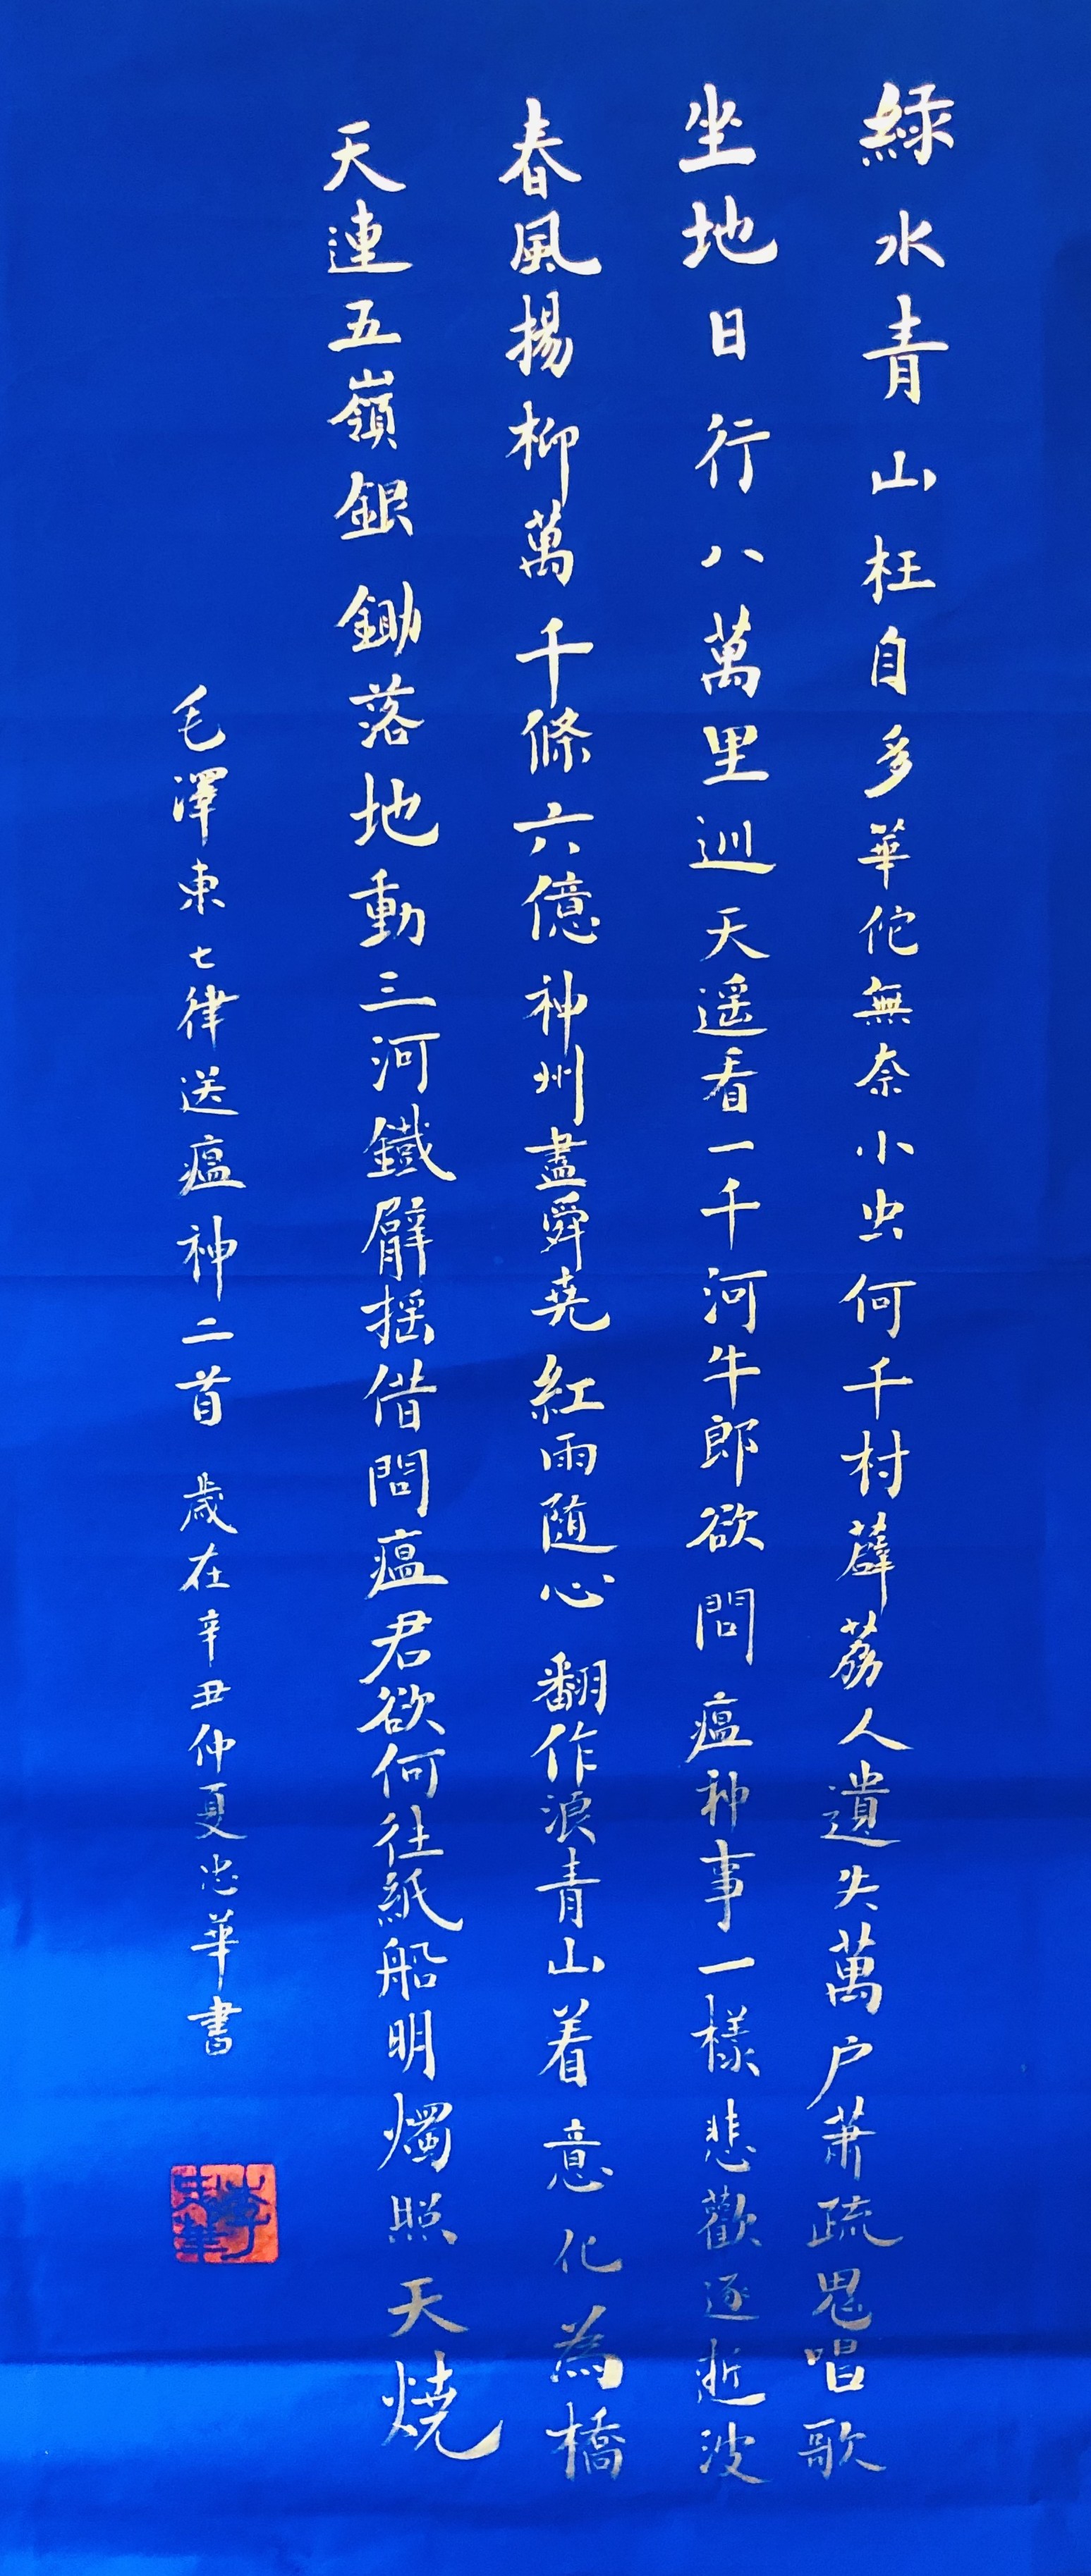 緑水青山枉自多華佗無奈小虫何千村薜荔人遺失萬户萧疏鬼唱歌
坐地日行八萬里巡天遥看一千河牛郎欲問瘟神事一樣悲歡逐逝波
春風揚柳萬千條六億神州盡舜堯紅雨随心翻作浪青山着意化為橋
天連五嶺銀鋤落地動三河鐵臂摇借問瘟君欲何往紙船明燭照天燒
毛澤東七律送瘟神二首 歲在辛丑仲夏忠華書